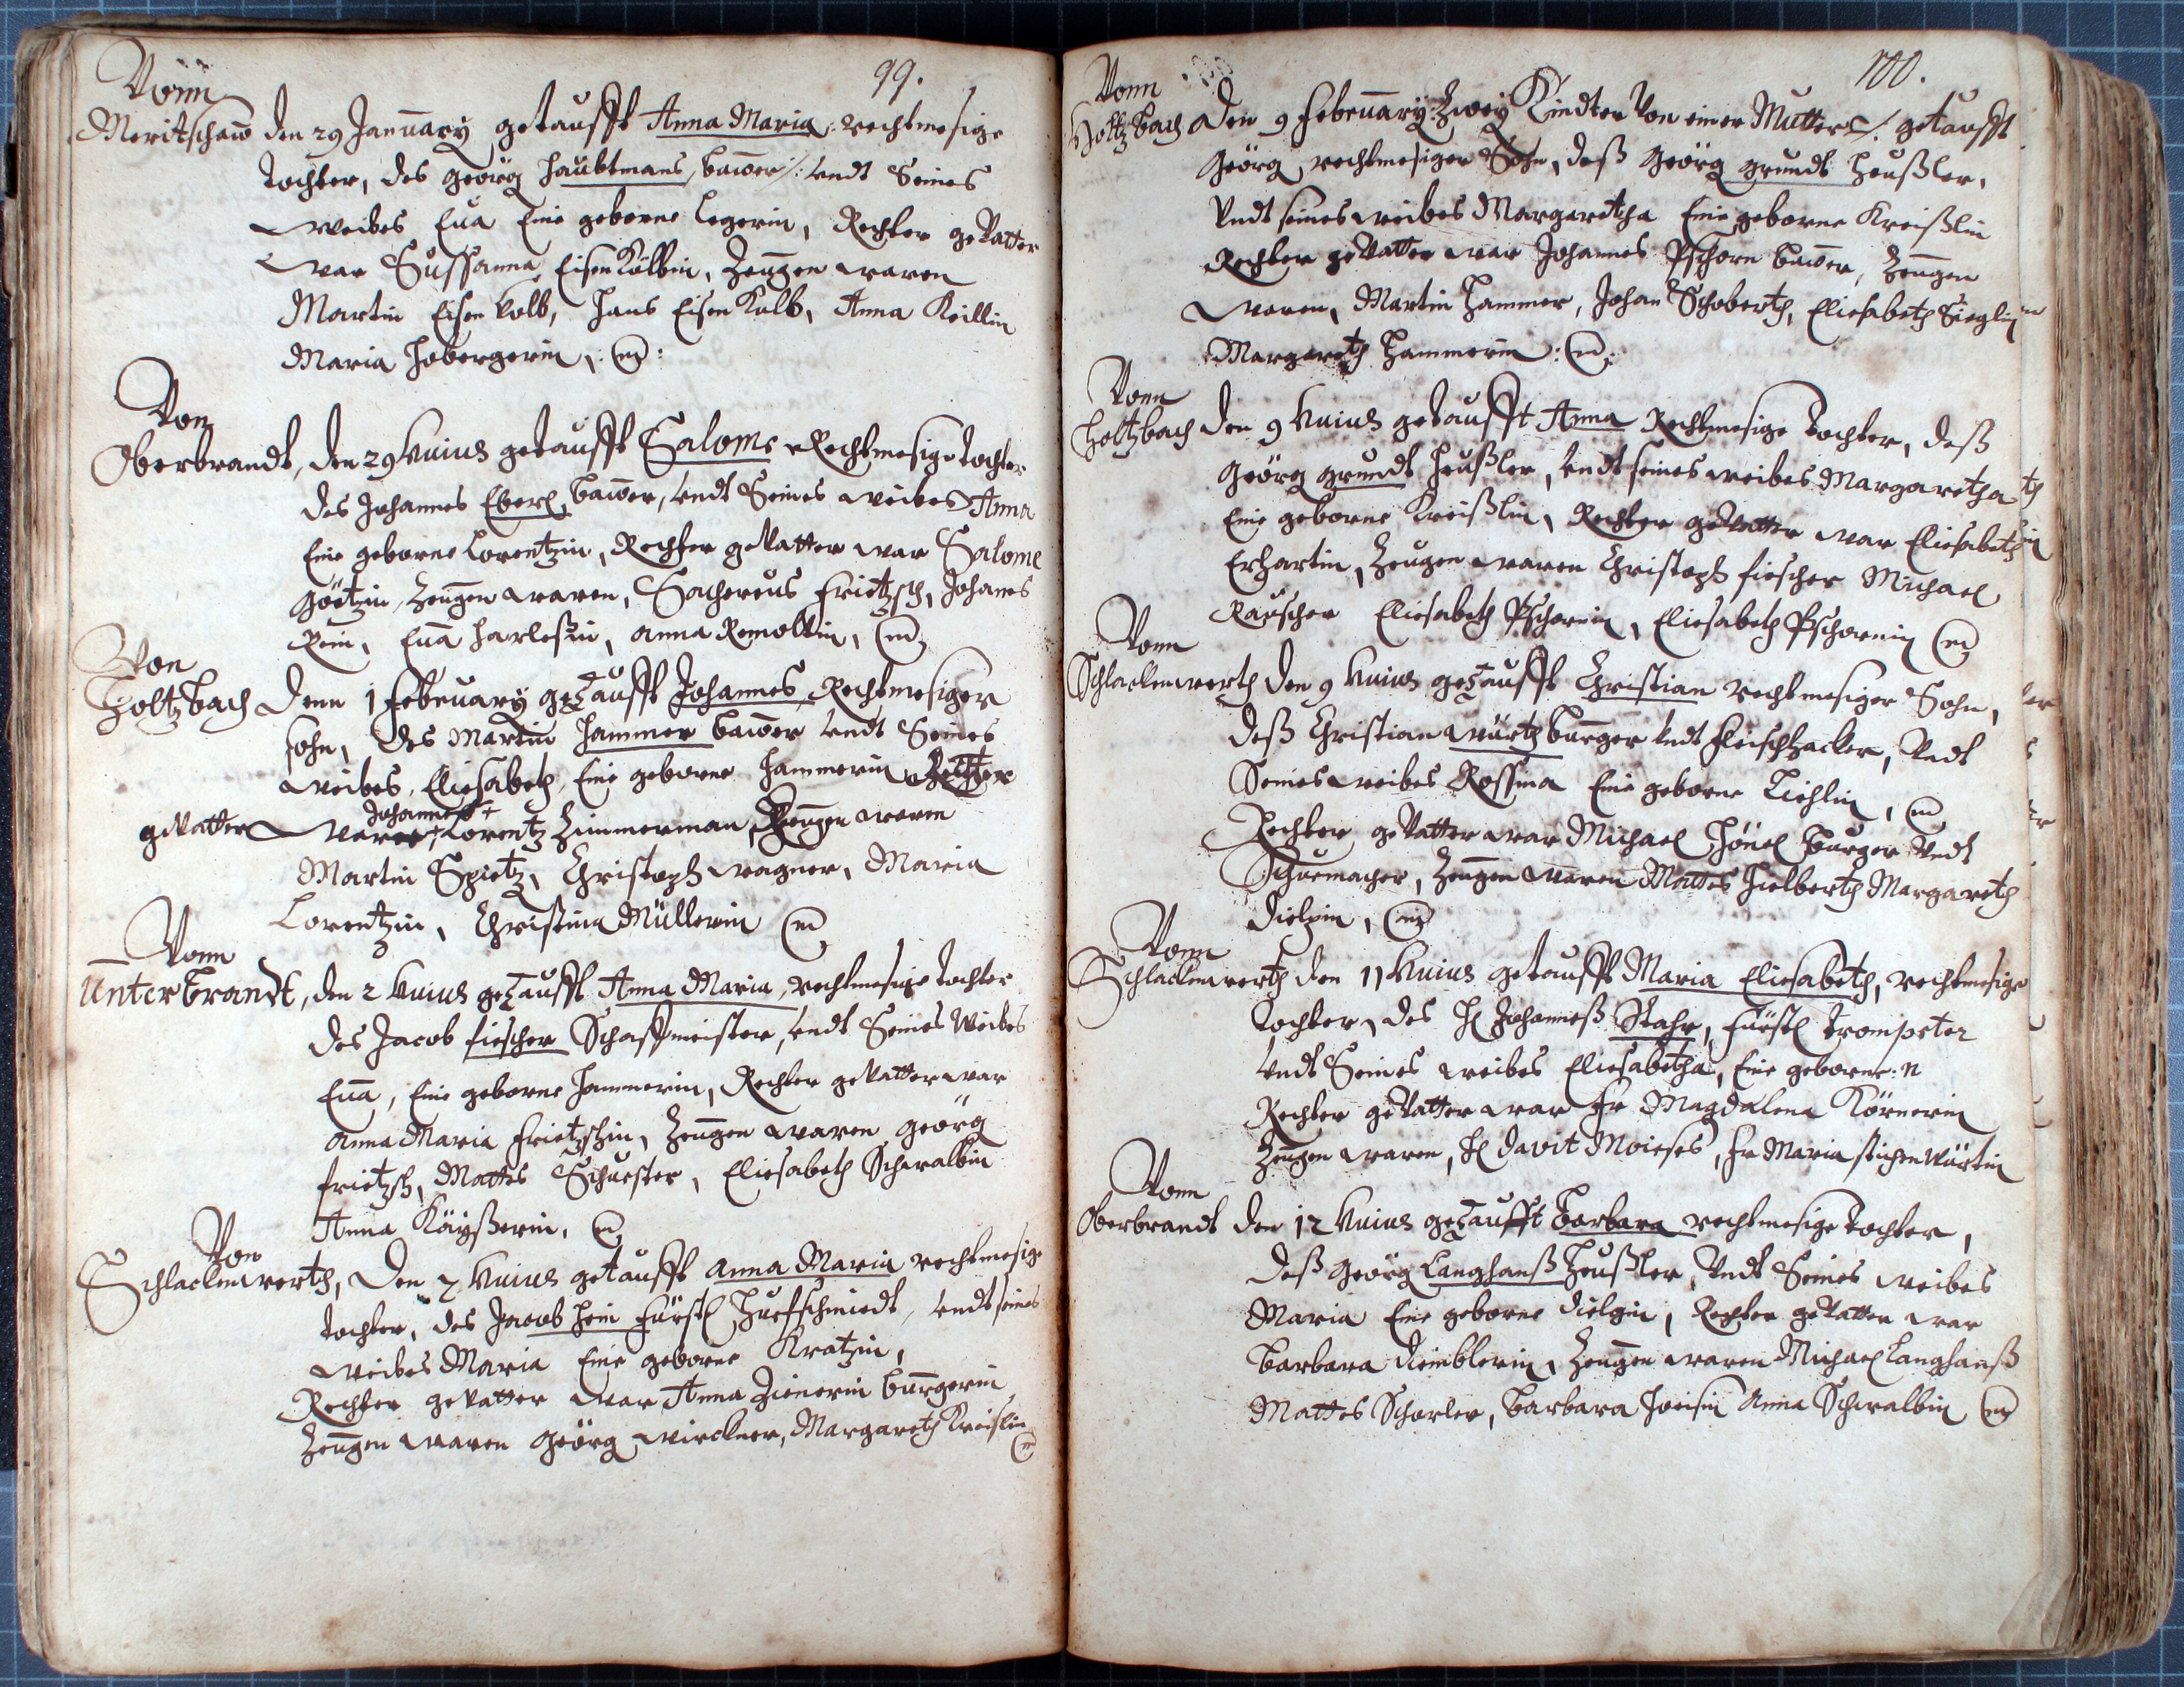 99.
Vonn
Meritschaw den 29 January getaufft Anna Maria rechtmesige
tochter, des Geörg Haubtmans, bawer /: undt Seines
weibes Eua Eine geborne Legerin, Rechter geVatter
war Sussanna EisenKolbin, Zeugen waren
Martin Eisenkolb, Hans EisenKolb, Anna Keillin
Maria Hobergerin,
Von
Oberbrandt, den 29 Huius getaufft Salome Rechtmesige tochter
des Johannes Eberl, bawer, undt Seines weibes Anna
Eine geborne Lorentzin, Rechter geVatter war Salome
Götzin, Zeugen waren, Sachereus Frietzsch, Johanes
Rein, Eua Harleßin, Anna Remoltin,
Von
Holtzbach Denn 1 February getaufft Johannes Rechtmesiger
sohn, des Martin Hammer bawer undt Seines
weibes, Eliesabeth, Eine geborne Hammerin Rechter
Johannes +
geVatter war + Lorentz Zimmerman, Zeugen waren
Martin Spietz, Christoph wagner, Maria
Lorentzin, Christina Müllerin
Vonn
Unterbrandt, den 2 Huius getaufft Anna Maria, rechtmesige tochter
des Jacob fiescher Schaffmeister, undt Seines Weibes
Eua, Eine geborne Hammerin, Rechter geVatter war
Anna Maria Frietzschin, Zeugen waren Geörg
frietzsch, Mattes Schuester, Eliesabeth Schwalbin
Anna Käyßerin,
Von
Schlackenwerth, Den 7 Huius getaufft Anna Maria rechtmesige
tochter, des Jacob Hein Fürstl Huefschmiedt, undt seines
weibes Maria Eine geborne Kratzin,
Rechter geVatter war Anna Zienerin burgerin
Zeugen waren Geörg wirckner, Margareth Kreislin
100.
Vonn
Holtzbach Den 9 February: Zwey Kindter Von einer Mutter /: getaufft
Geörg, rechtmesiger Sohn, deß Geörg grundt Heußler,
Undt seines weibes Margaretha Eine geborne Kreißlin
Rechter geVatter war Johannes Pschorn bawer, Zeugen
waren, Martin Hammer, Johan Schoberth, Eliesabeth Sieglin
Margareth Hammerin:
Vonn
Holtzbach Den 9 Huius getaufft Anna Rechtmesige tochter, deß
Geörg grundt Heußler, undt seines weibes Margaretha
Eine geborne Kreißlin, Rechter geVatter war Eliesabeth
Erhartin, Zeugen waren Christoph fiescher Michael
Rauscher Eliesabeth Pschornin, Eliesabeth Pschornin
Vonn
Schlackenwerth Den 9 Huius getaufft Christian rechtmesiger Sohn,
deß Christian würtz burger undt fleischhacker, Undt
Seines weibes Rossina Eine geborne Liehlin,
Rechter geVatter war Michael Hönel burger Undt
Schuemacher, Zeugen waren Mattes Hielberth Margareth
Dielzin,
Vonn
Schlackenwerth den 11 Huius getaufft Maria Eliesabeth, rechtmesige
tochter, des H Johanneß Stahr, Fürstl Trompeter
undt Seines weibes Eliesabetha, Eine geborne: n
Rechter geVatter war Fr Magdalena Körnerin
Zeugen waren, H Davit Moieses, Fr Maria
Vonn
Oberbrandt Den 12 Huius getaufft Barbara rechtmesige tochter,
deß Geörg Langhanß Heußler, Undt Seines weibes
Maria Eine geborne Dielgin, Rechter geVatter war
Barbara Diemblerin, Zeugen waren Michael Langhanß
Mattes Schorler, Barbara Anna Schwalbin